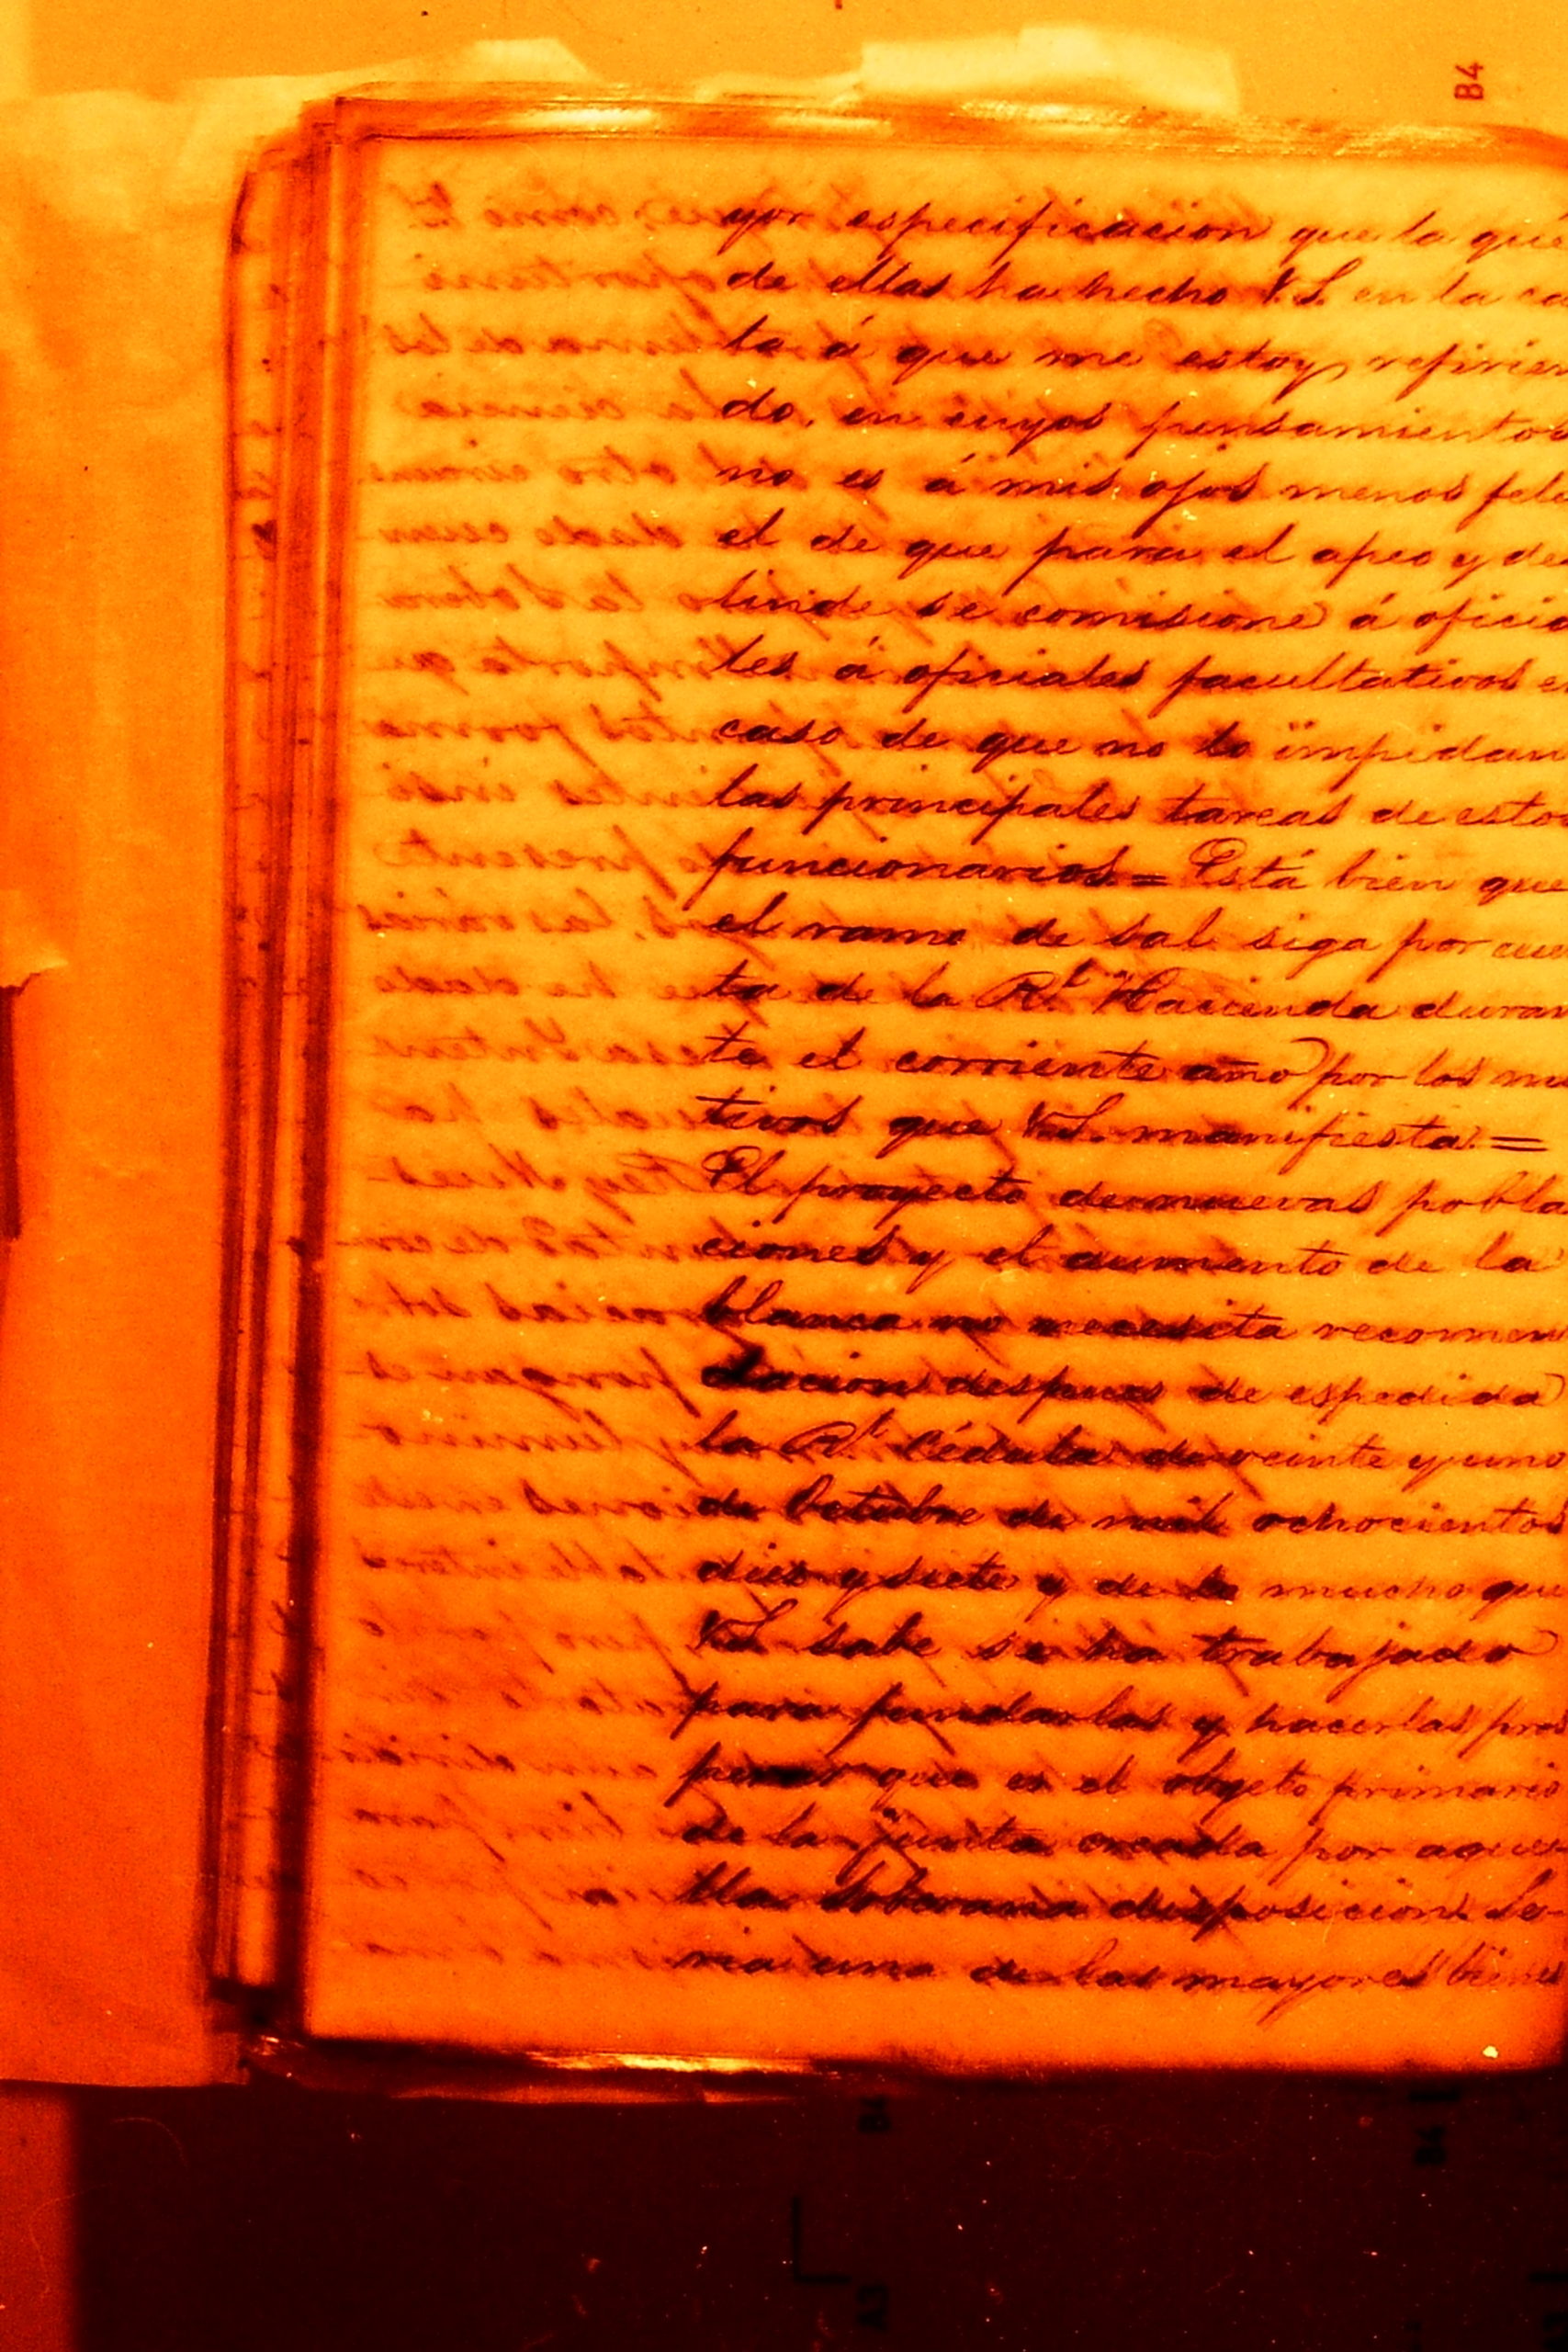 B4
yor especificacion que la que
de ellas ha hecho V.S. en la ca
ta á que me estoy refirien
do, en cuyos pensamientos
no es á mis ojos menos feli
el de que para el apeo y des
linde se comisione á oficia
les á oficiales facultativos en
caso de que no lo impidan
las principales tareas de estos
funcionarios = Está bien que
el ramo de sal siga por cuen
ta de la Rl. Hacienda duran
te el corriente año por los mo
tivos que V.S. manifiesta. =
El proyecto de nuevas pobla
ciones y el aumento de la
blanca no necesita recomen
dacion despues de espedida
la Rl. Cédula de veinte y uno
de Octubre de mil ochocientos
diez y siete y de lo mucho que
V.S. sabe se ha trabajado
para fundarlas y hacerlas pros
perar que es el objeto primario
de la junta creada por aque
lla soberana disposicion. Se-
ria una de las mayores bienes
B4
B4
A3